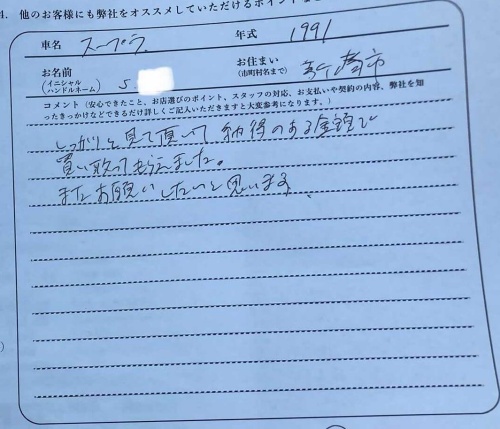 4. 他のお客様にも弊社をオススメしていただけるポイント
車名 スープラ 年式 1991
お名前 (イニシャル ハンドルネーム) S. お住まい (市町村名まで) 市
コメント（安心できたこと、お店選びのポイント、スタッフの対応、お支払いや契約の内容、弊社を知
ったきっかけなどできるだけ詳しくご記入いただきますと大変参考になります。）
しっかりと見て頂いて 納得のある金額で
買い取ってもらえました。
またお願いしたいと思います。